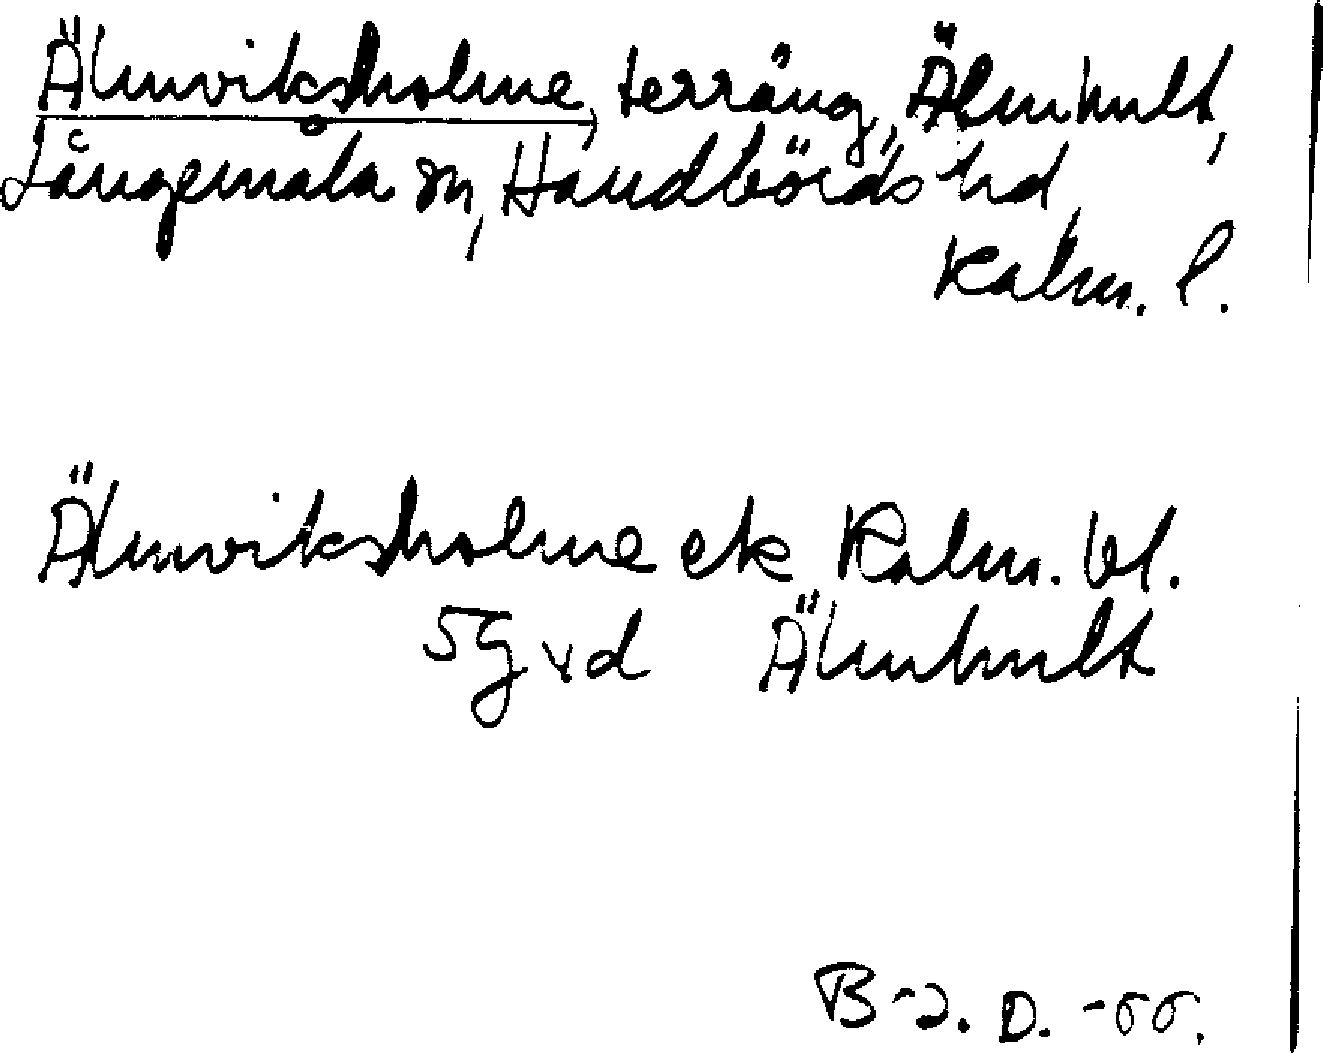 Älmviksholme, terräng, Älmhult,
Långemåla sn, Handbörds hd,
Kalm. l.
Älmviksholme ek Kalm. bl.
5g vd Älmhult
B-a. D. -55.